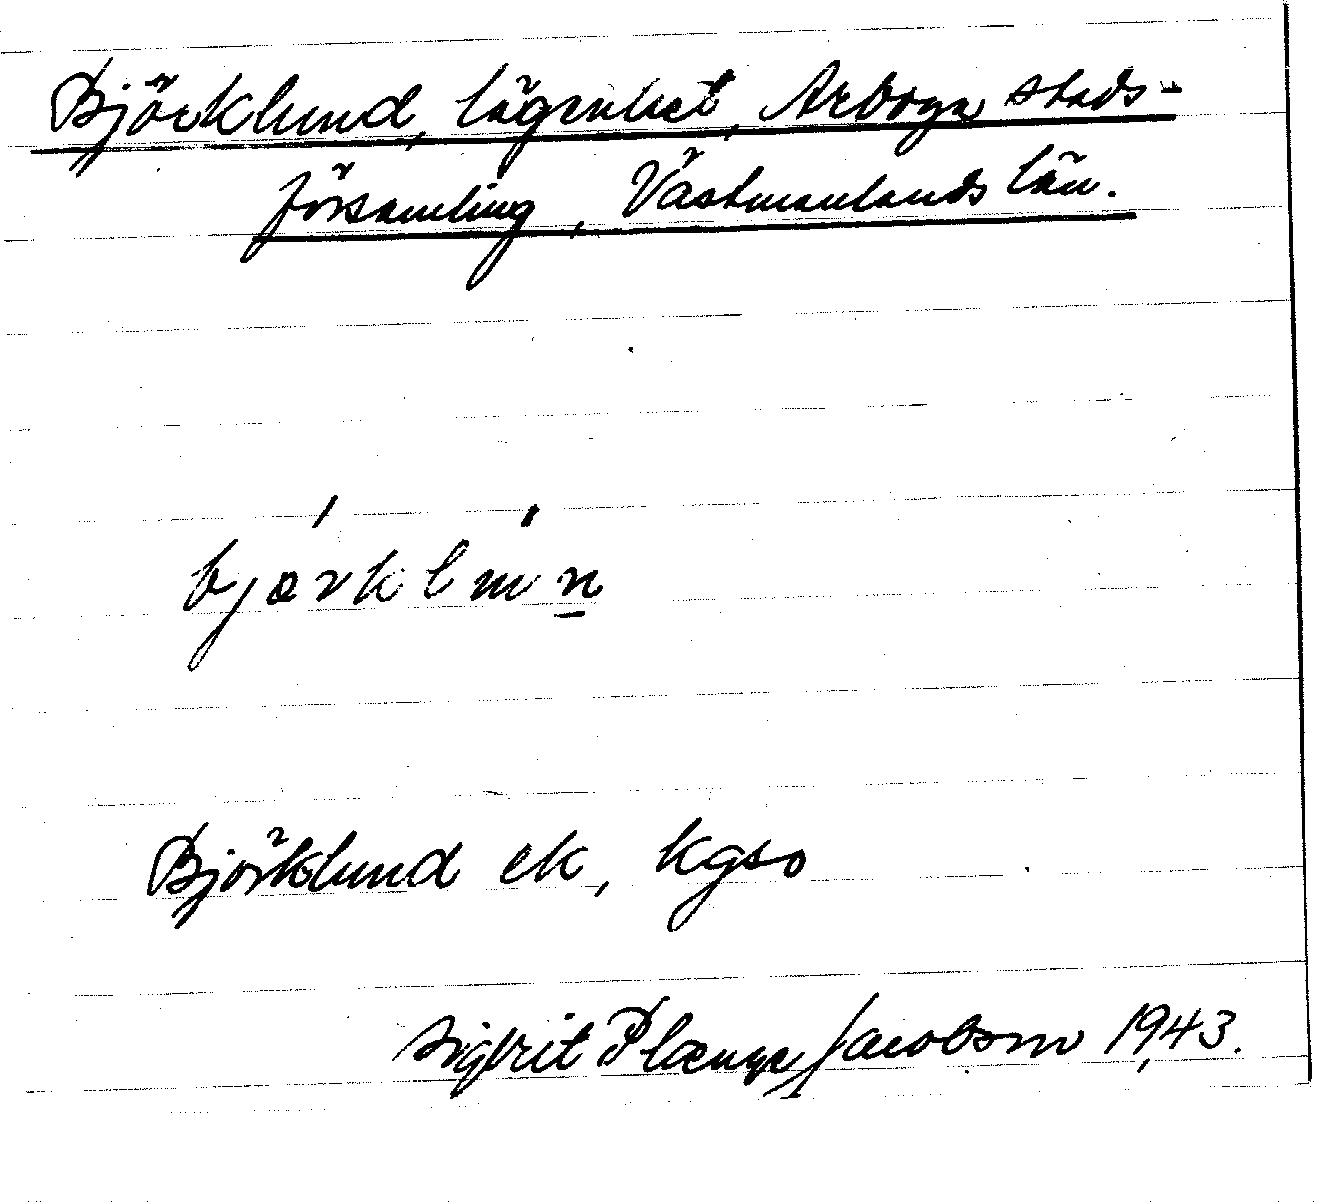 Björklund, lägenhet, Arboga stads-
församling, Västmanlands län.
Björklund ek, kgso
Sigfrit Plænge Jacobson 1943.